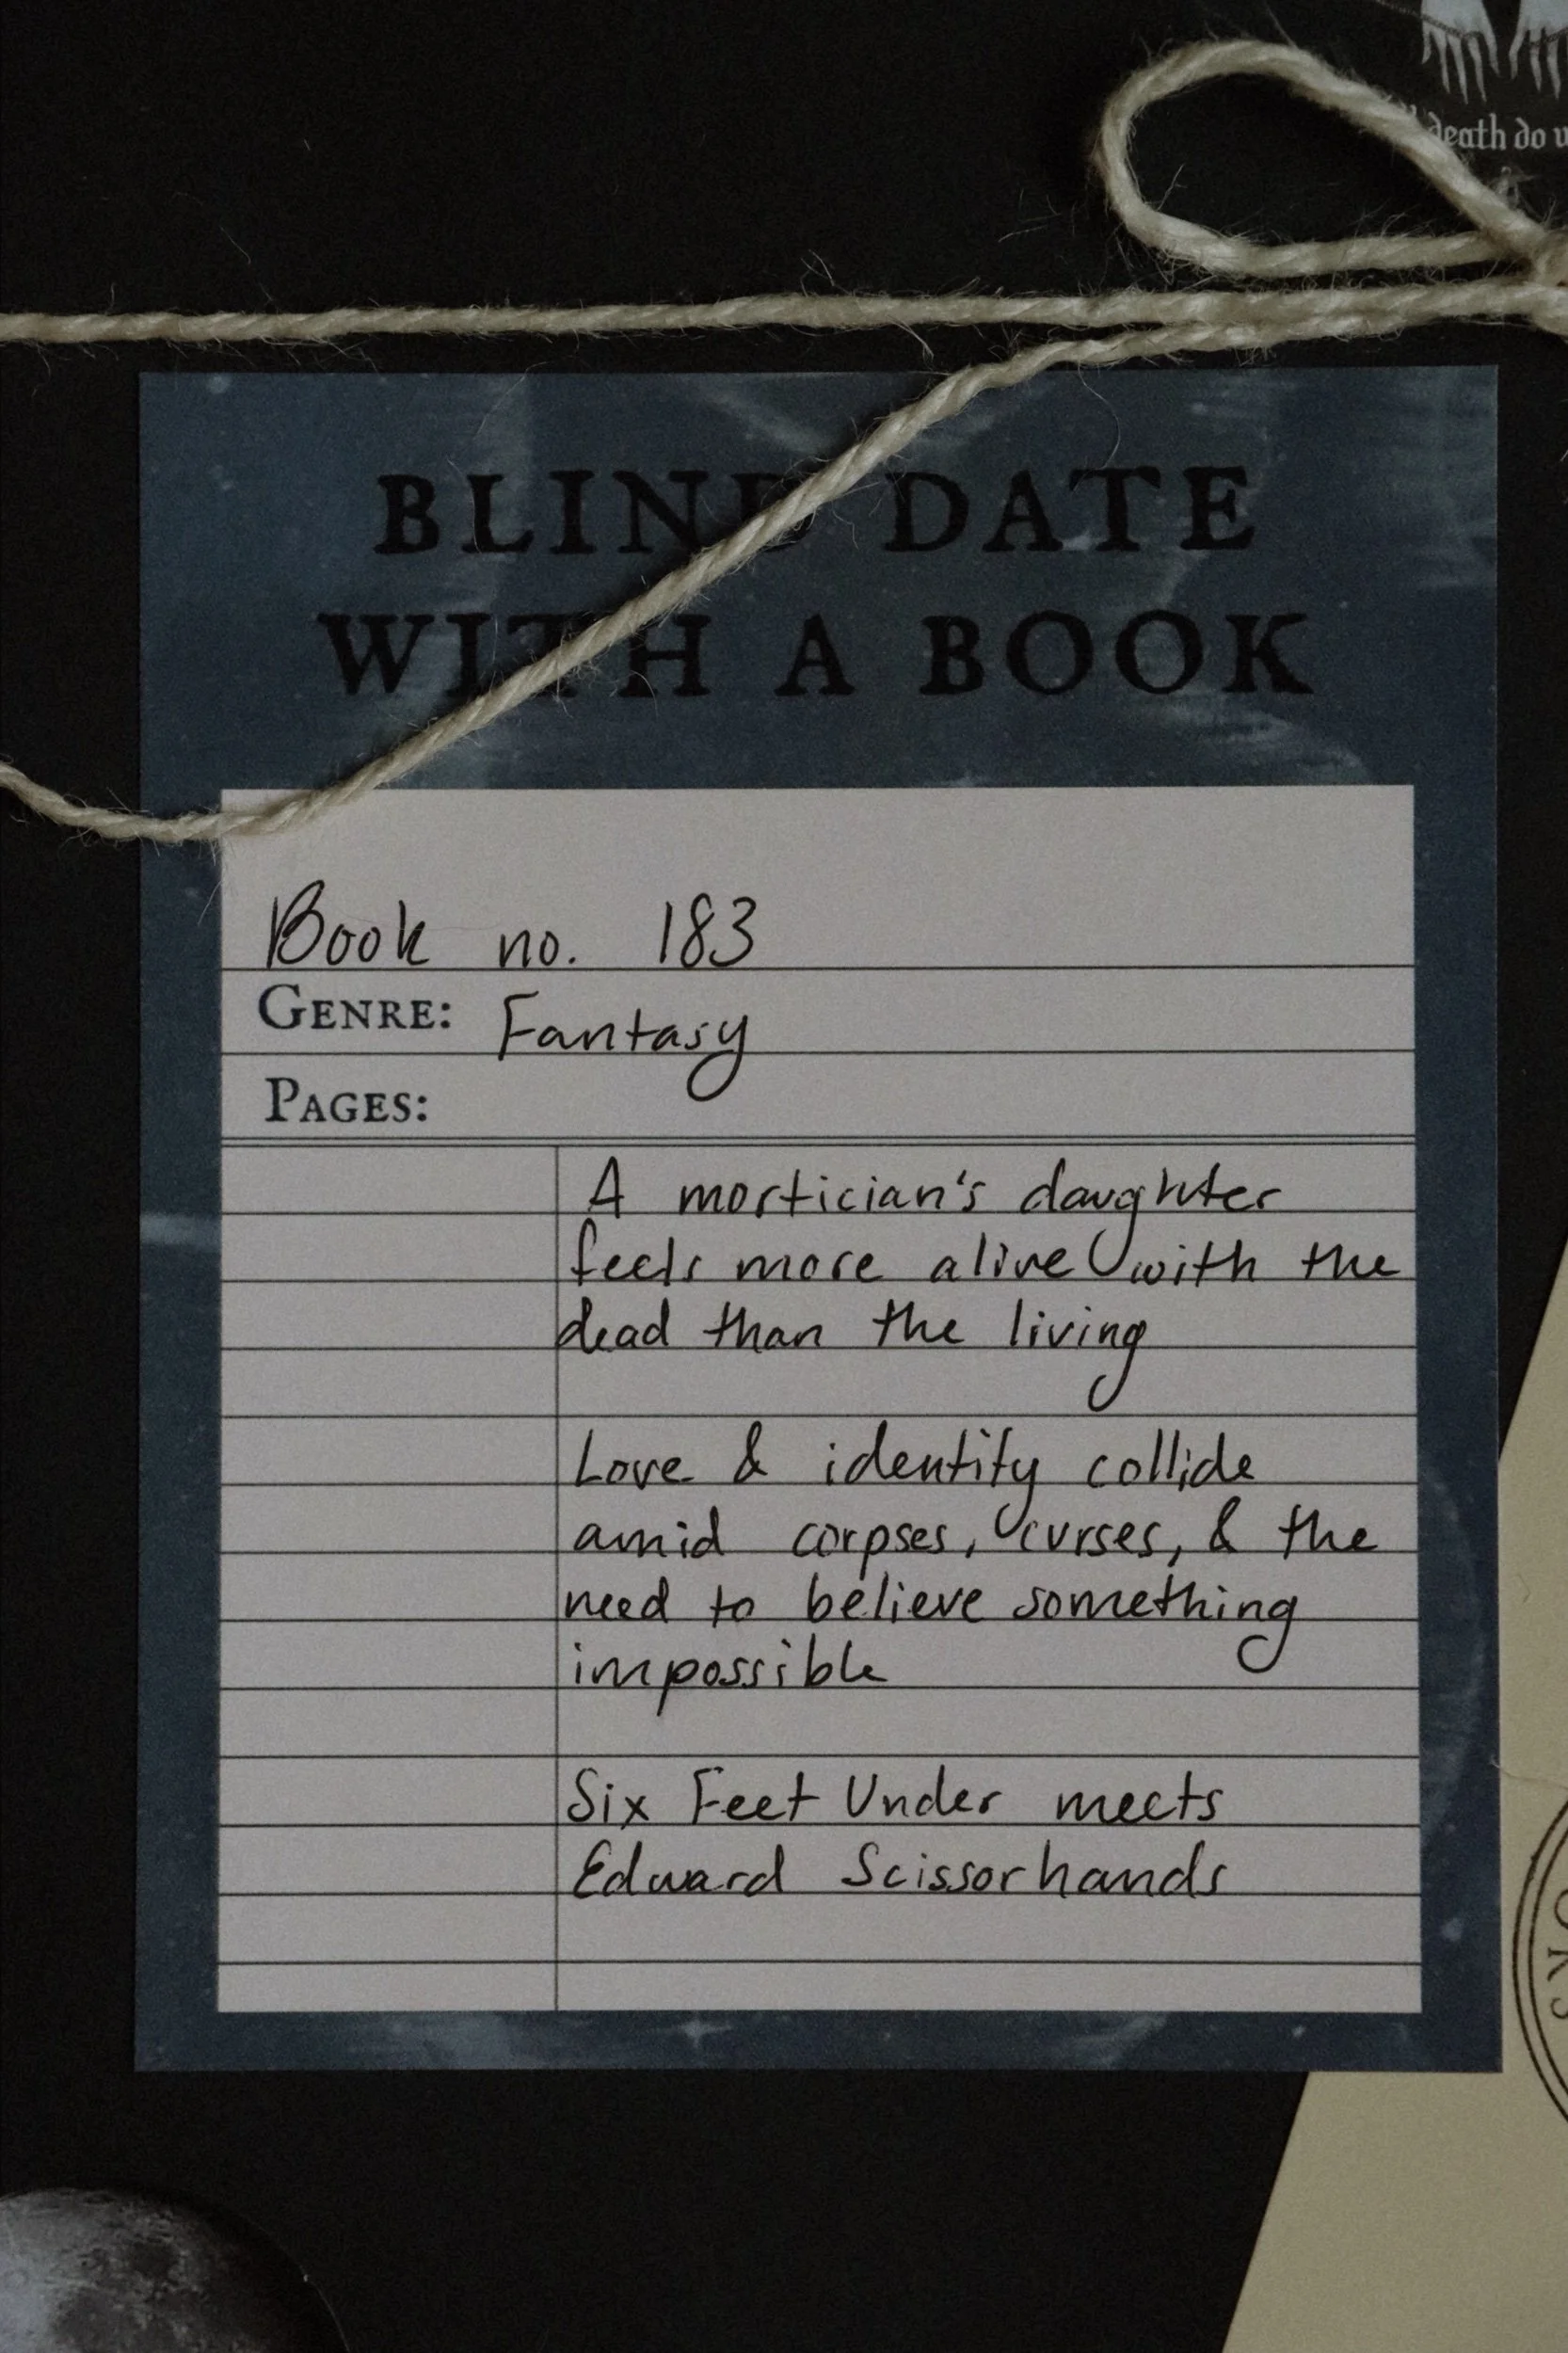 death do
BLIND DATE
WITH A BOOK
Book no. 183
GENRE: Fantasy
PAGES:
A mortician's daughter
feels more alive with the
dead than the living
Love & identity collide
amid corpses, curses, & the
need to believe something
impossible
Six Feet Under meets
Edward Scissorhands